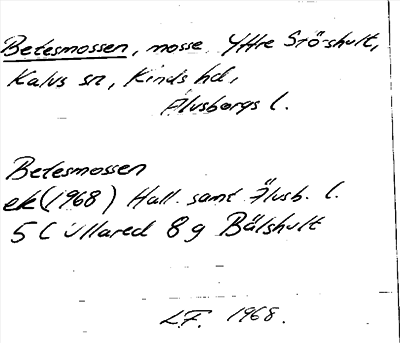 Betesmossen, mosse Yttre Srö-shult,
Kalvs sn, Kinds hd,
Älvsborgs l.
Betesmossen
ek (1968) Hall. samt Älvsb. l.
5 C Ullared 8 g Bälshult
LF. 1968.